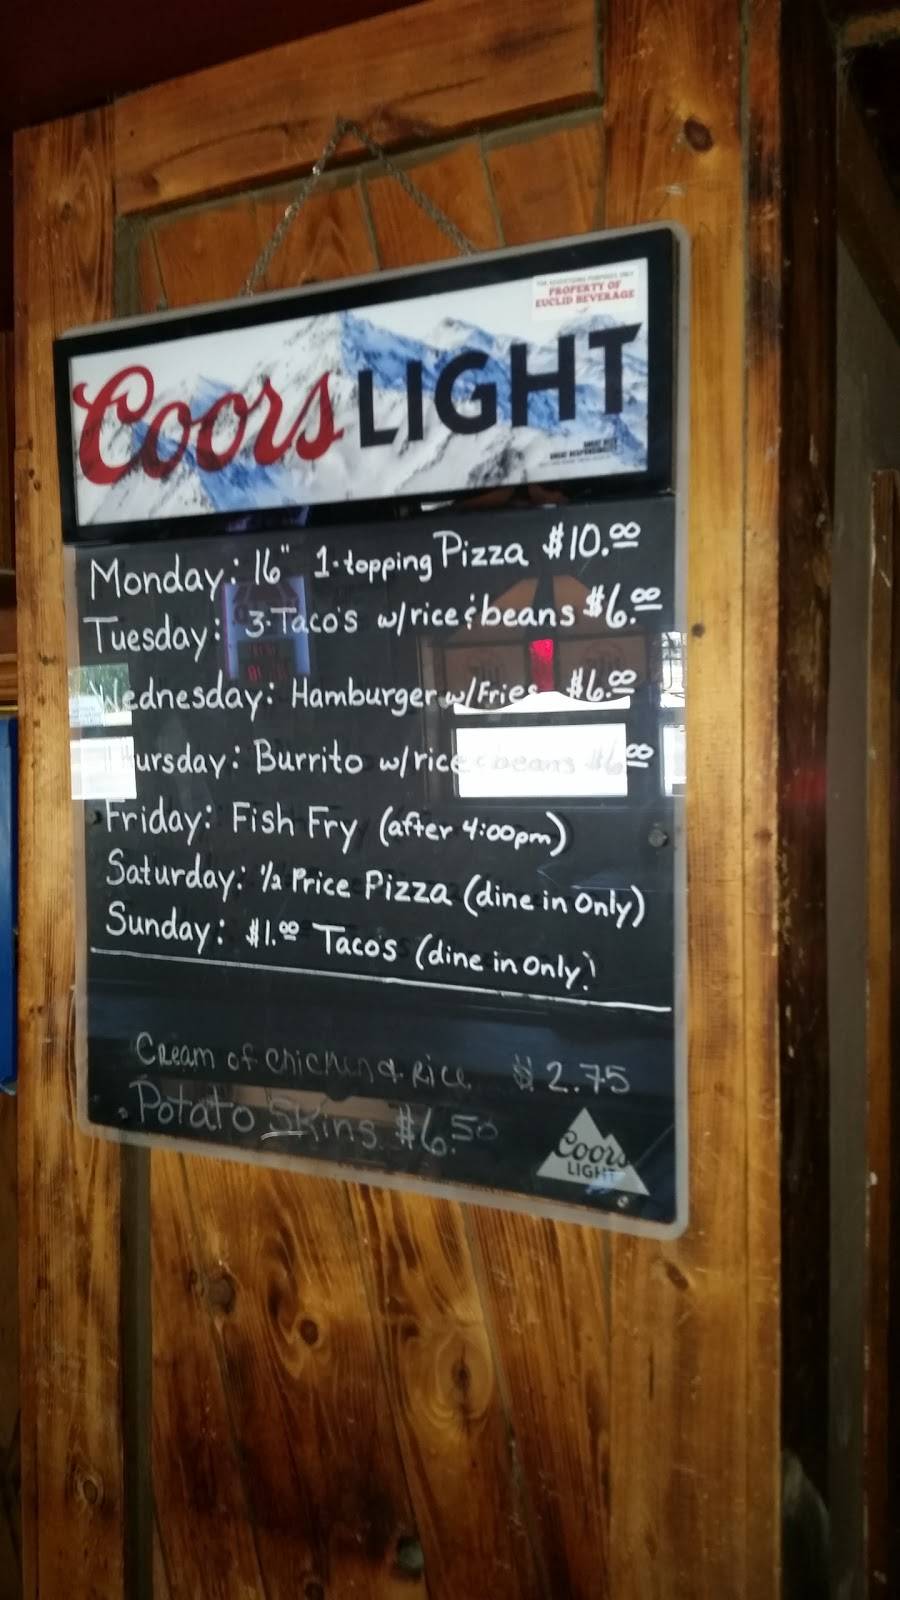 FOR ADVERTISING PURPOSES ONLY
PROPERTY OF
EUCLID BEVERAGE
Coors LIGHT
GREAT BEER
GREAT RESPONSIBILITY
Monday: 16" 1-topping Pizza $10.00
Tuesday: 3-Taco's w/rice & beans $6.00
Wednesday: Hamburger w/Fries $6.00
Thursday: Burrito w/rice & beans $6.00
Friday: Fish Fry (after 4:00pm)
Saturday: 1/2 Price Pizza (dine in Only)
Sunday: $1.00 Taco's (dine in Only)
Cream of Chicken & Rice $2.75
Potato Skins $6.50
Coors
LIGHT